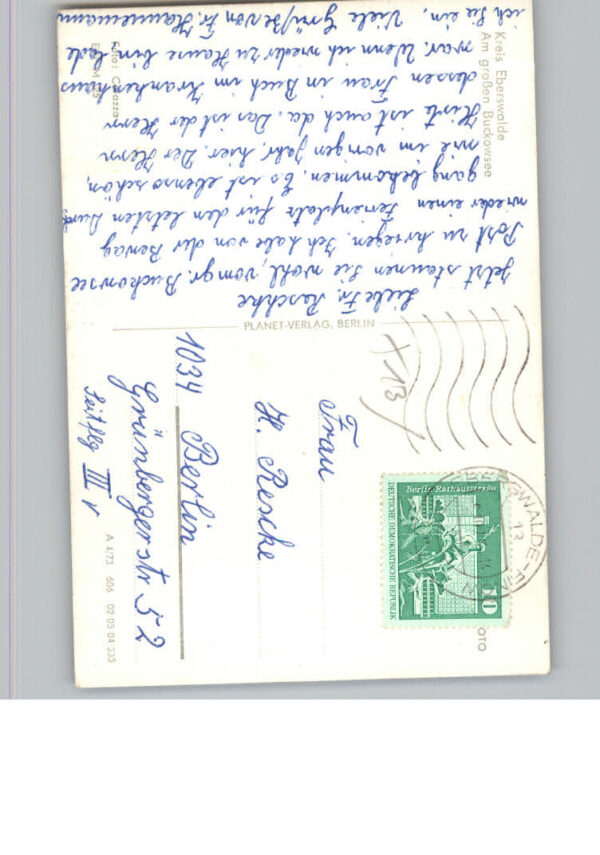 Kreis Eberswalde
Am großen Buckowsee
Liebe Fr. Raschke
Jetzt staunen Sie wohl, vom gr. Buckowsee
Post zu kriegen. Ich habe von der Bewag
wieder einen Ferienplatz für den letzten Durch
gang bekommen. Es ist ebenso schön,
wie im vorigen Jahr, hier. Der Herr
ist auch da. Das ist der Herr
dessen Frau in Buch im Krankenhaus
war. Wenn ich wieder zu Hause bin lade
ich Sie ein. Viele Grüße von Fr. Hannemann
Foto:
PLANET-VERLAG, BERLIN
+13/
Frau
H. Reschke
1034 Berlin
Grünbergerstr 52
Seitflg III r
A 4/73 606 02 05 04 335
Berlin, Rathausstraße
DEUTSCHE DEMOKRATISCHE REPUBLIK
10
EBERSWALDE-FIN
13
OTO